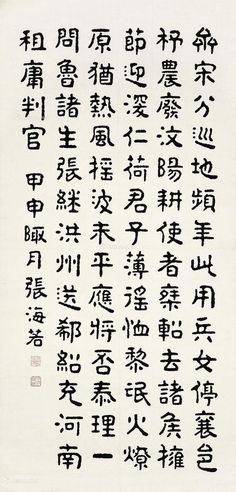 齊宋分巡地頻年此用兵女停襄邑
杼農廢汶陽耕使者乘軺去諸矦擁
節迎深仁荷君子薄徭恤黎氓火燎
原猶熱風搖波未平應將否泰理一
問魯諸生張継洪州送郗紹充河南
租庸判官 甲申陬月張海若